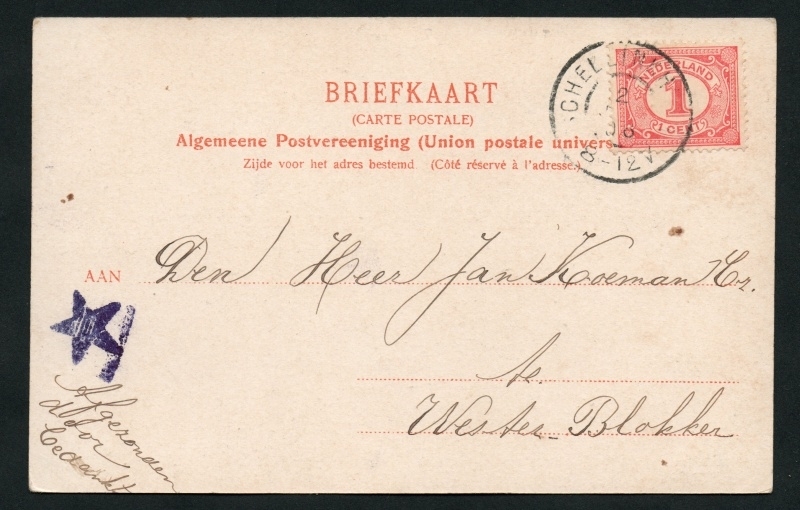 BRIEFKAART
(CARTE POSTALE)
Algemeene Postvereeniging (Union postale univers
Zijde voor het adres bestemd. (Côté réservé à l'adresse.)
NEDERLAND
1
1 CENT
SCHELLINKH
8-12V
AAN Den Heer Jan Koeman Kr.
te
Wester-Blokker
Afgezonden
door